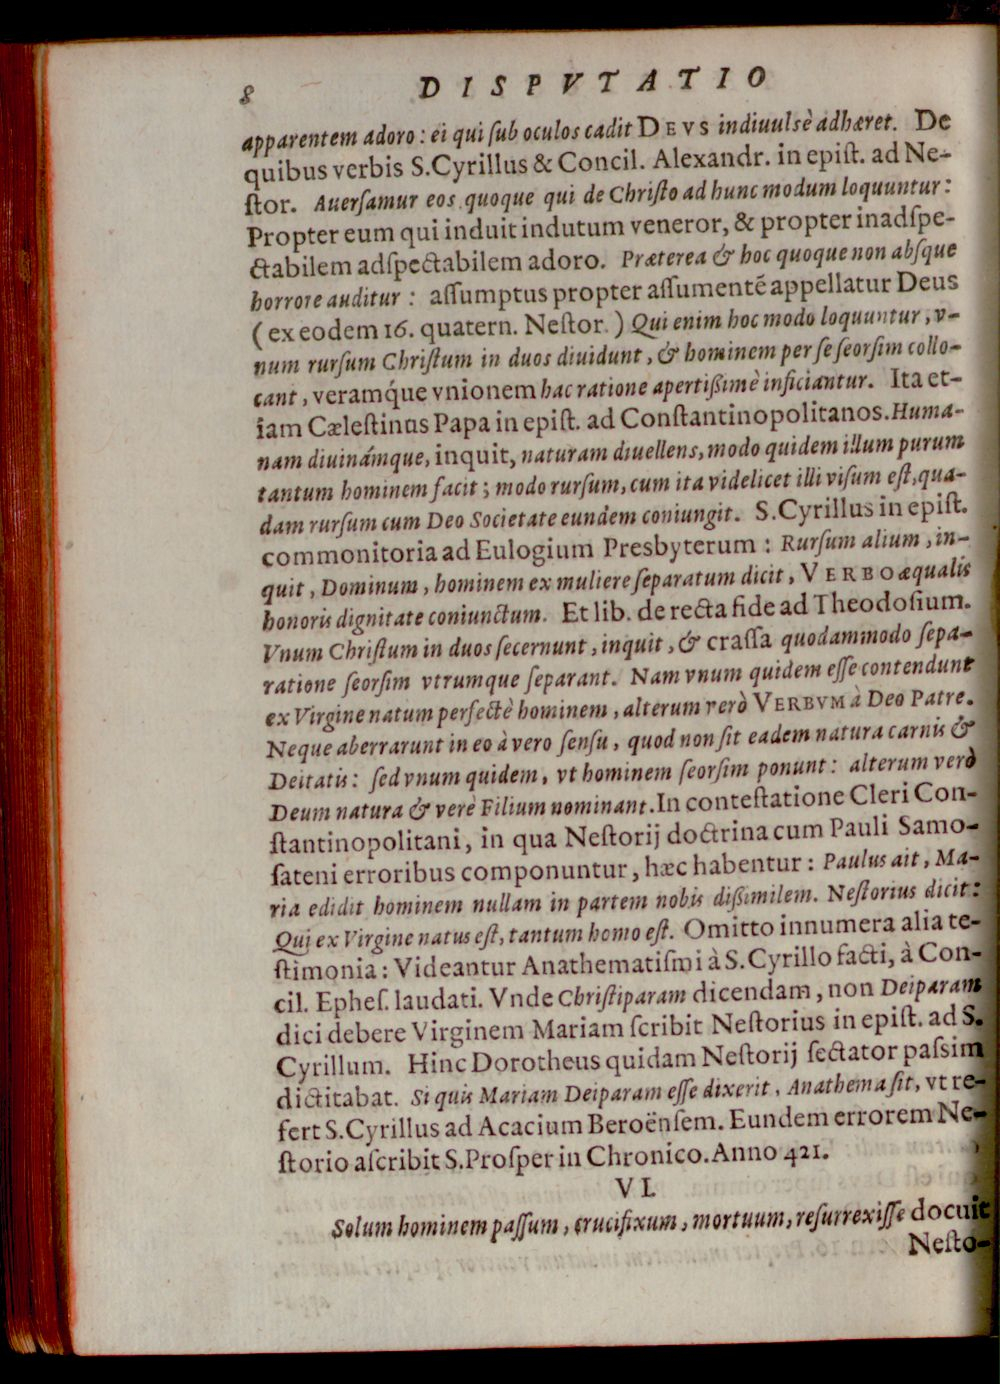 8 DISPVTATIO
apparentem adoro : ei qui ſub oculos cadit DEVS indiuulsè adhæret. De
quibus verbis S.Cyrillus & Concil. Alexandr. in epiſt. ad Ne-
ſtor. Auerſamur eos quoque qui de Chriſto ad hunc modum loquuntur :
Propter eum qui induit indutum veneror, & propter inadſpe-
ctabilem adſpectabilem adoro. Præterea & hoc quoque non abſque
horrore auditur : aſſumptus propter aſſumentē appellatur Deus
( ex eodem 16. quatern. Neſtor. ) Qui enim hoc modo loquuntur, v-
num rurſum Chriſtum in duos diuidunt, & hominem per ſe ſeorſim collo-
cant, veramq́ue vnionem hac ratione apertißimè inficiantur. Ita et-
iam Cæleſtinus Papa in epiſt. ad Conſtantinopolitanos. Huma-
nam diuinámque, inquit, naturam diuellens, modo quidem illum purum
tantum hominem facit ; modo rurſum, cum ita videlicet illi viſum eſt, qua-
dam rurſum cum Deo Societate eundem coniungit. S.Cyrillus in epiſt.
commonitoria ad Eulogium Presbyterum : Rurſum alium, in-
quit, Dominum, hominem ex muliere ſeparatum dicit, VERBO æqualis
honoris dignitate coniunctum. Et lib. de recta fide ad Theodoſium.
Vnum Chriſtum in duos ſecernunt, inquit, & craſſa quodammodo ſepa-
ratione ſeorſim vtrumque ſeparant. Nam vnum quidem eſſe contendunt
ex Virgine natum perfectè hominem, alterum verò VERBVM à Deo Patre.
Neque aberrarunt in eo à vero ſenſu, quod non ſit eadem natura carnis &
Deitatis : ſed vnum quidem, vt hominem ſeorſim ponunt : alterum verò
Deum natura & verè Filium nominant. In conteſtatione Cleri Con-
ſtantinopolitani, in qua Neſtorij doctrina cum Pauli Samo-
ſateni erroribus componuntur, hæc habentur : Paulus ait, Ma-
ria edidit hominem nullam in partem nobis dißimilem. Neſtorius dicit :
Qui ex Virgine natus eſt, tantum homo eſt. Omitto innumera alia te-
ſtimonia : Videantur Anathematiſmi à S.Cyrillo facti, à Con-
cil. Epheſ. laudati. Vnde Chriſtiparam dicendam, non Deiparam
dici debere Virginem Mariam ſcribit Neſtorius in epiſt. ad S.
Cyrillum. Hinc Dorotheus quidam Neſtorij ſectator paſsim
dictitabat. Si quis Mariam Deiparam eſſe dixerit, Anathema ſit, vt re-
fert S.Cyrillus ad Acacium Beroënſem. Eundem errorem Ne-
ſtorio aſcribit S.Proſper in Chronico. Anno 421.
VI.
Solum hominem paſſum, crucifixum, mortuum, reſurrexiſſe docuit
Neſto-